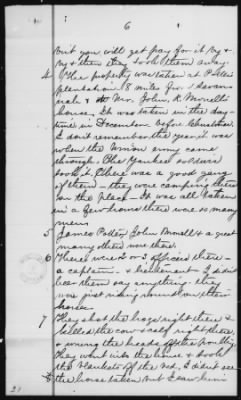 6
but you will get pay for it by &
by & then they took them away.
4 The property was taken at Potters
plantation 8 miles from Savan-
nah & at Mr. John, R. Morells
house. It was taken in the day-
time in December before Christmas.
I don't remember the year, it was
when the Union army came
through. The Yankee soldiers
took it. There was a good gang
of them - they were camping there
on the place - It was all taken
in a few hours there were so many
men
5 James Potter, John Morell & a great
many others were there.
6 There were 2 or 3 officers there -
a captain & lieutenant I didn't
hear them say anything. They
was just riding around on their
horses.
7 They shot the hogs right there &
killed the cow & calf right there,
& wrung the heads off the poultry
They went into the house & took
the blankets off the bed. I didn't see
the horse taken but I saw him